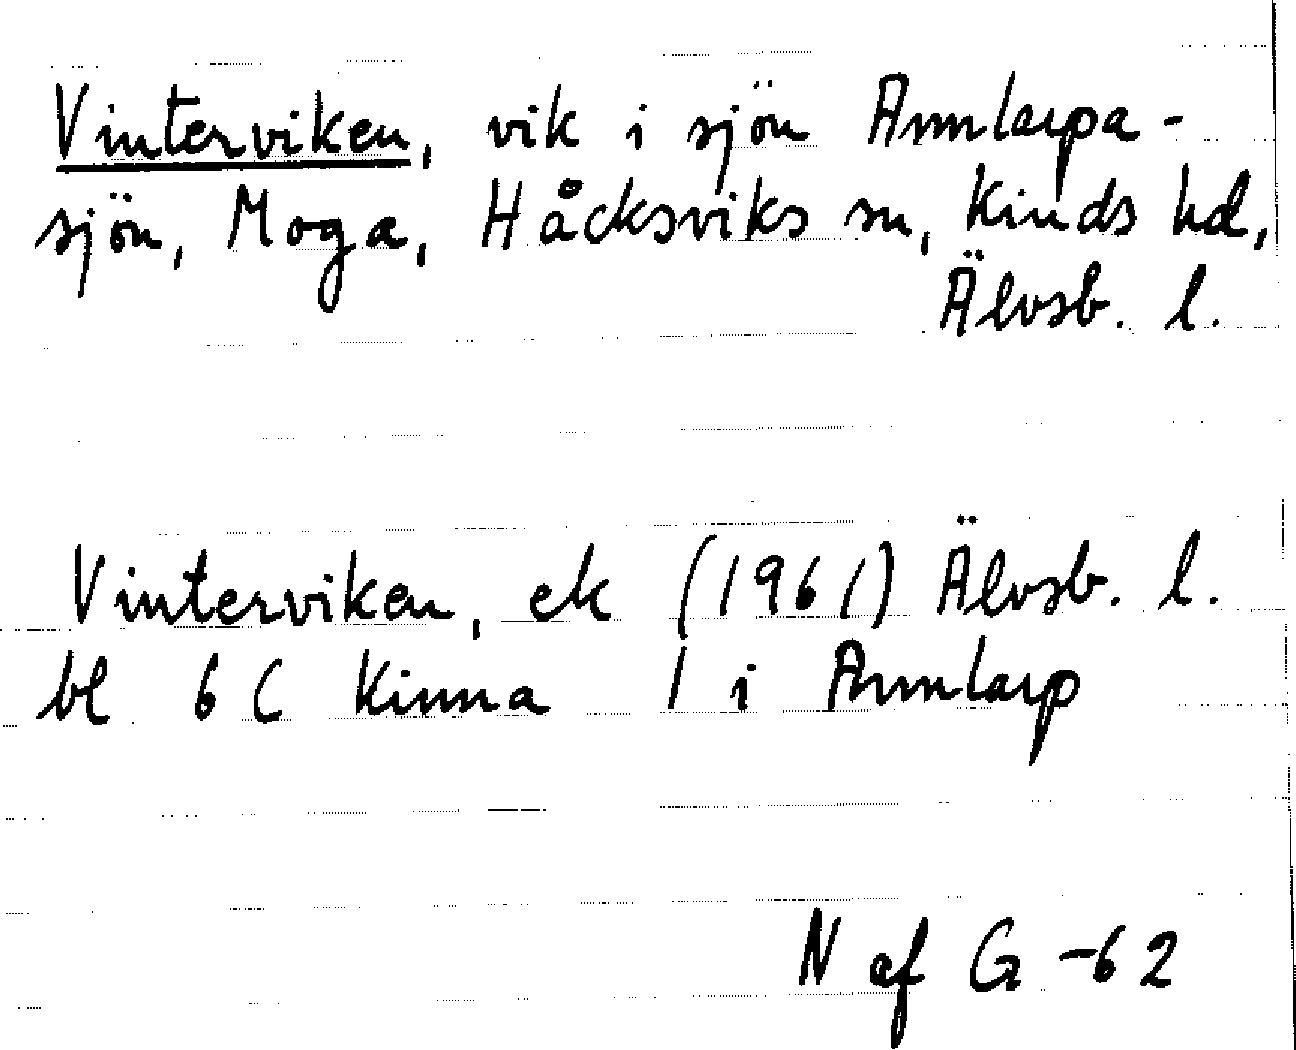 Vinterviken, vik i sjön Annlarpa-
sjön, Moga, Håcksviks sn, Kinds hd,
Älvsb. l.
Vinterviken, ek (1961) Älvsb. l.
bl 6 C Kinna 1 i Annlarp
N af G -62